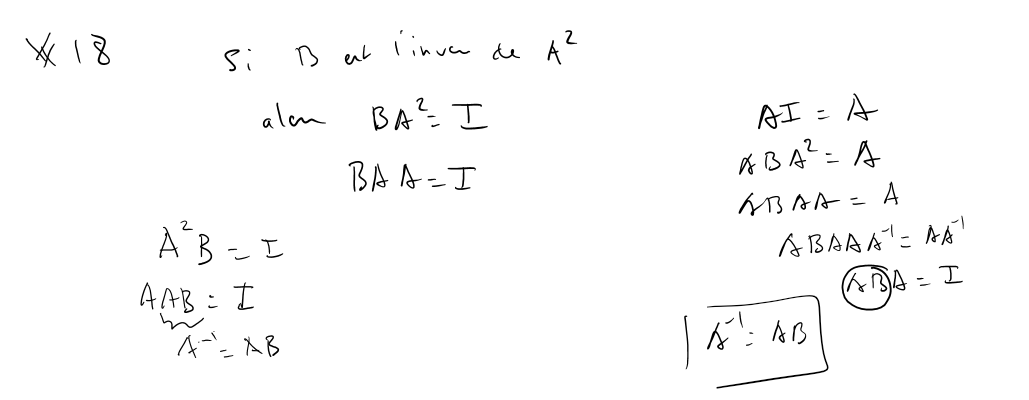 # 18 Si B est l'inver de A²
alors BA² = I
BAA = I
A²B = I
AAB = I
A⁻¹ = AB
AI = A
ABA² = A
ABAA = A
ABAAA⁻¹ = AA⁻¹
ABA = I
A⁻¹ = AB